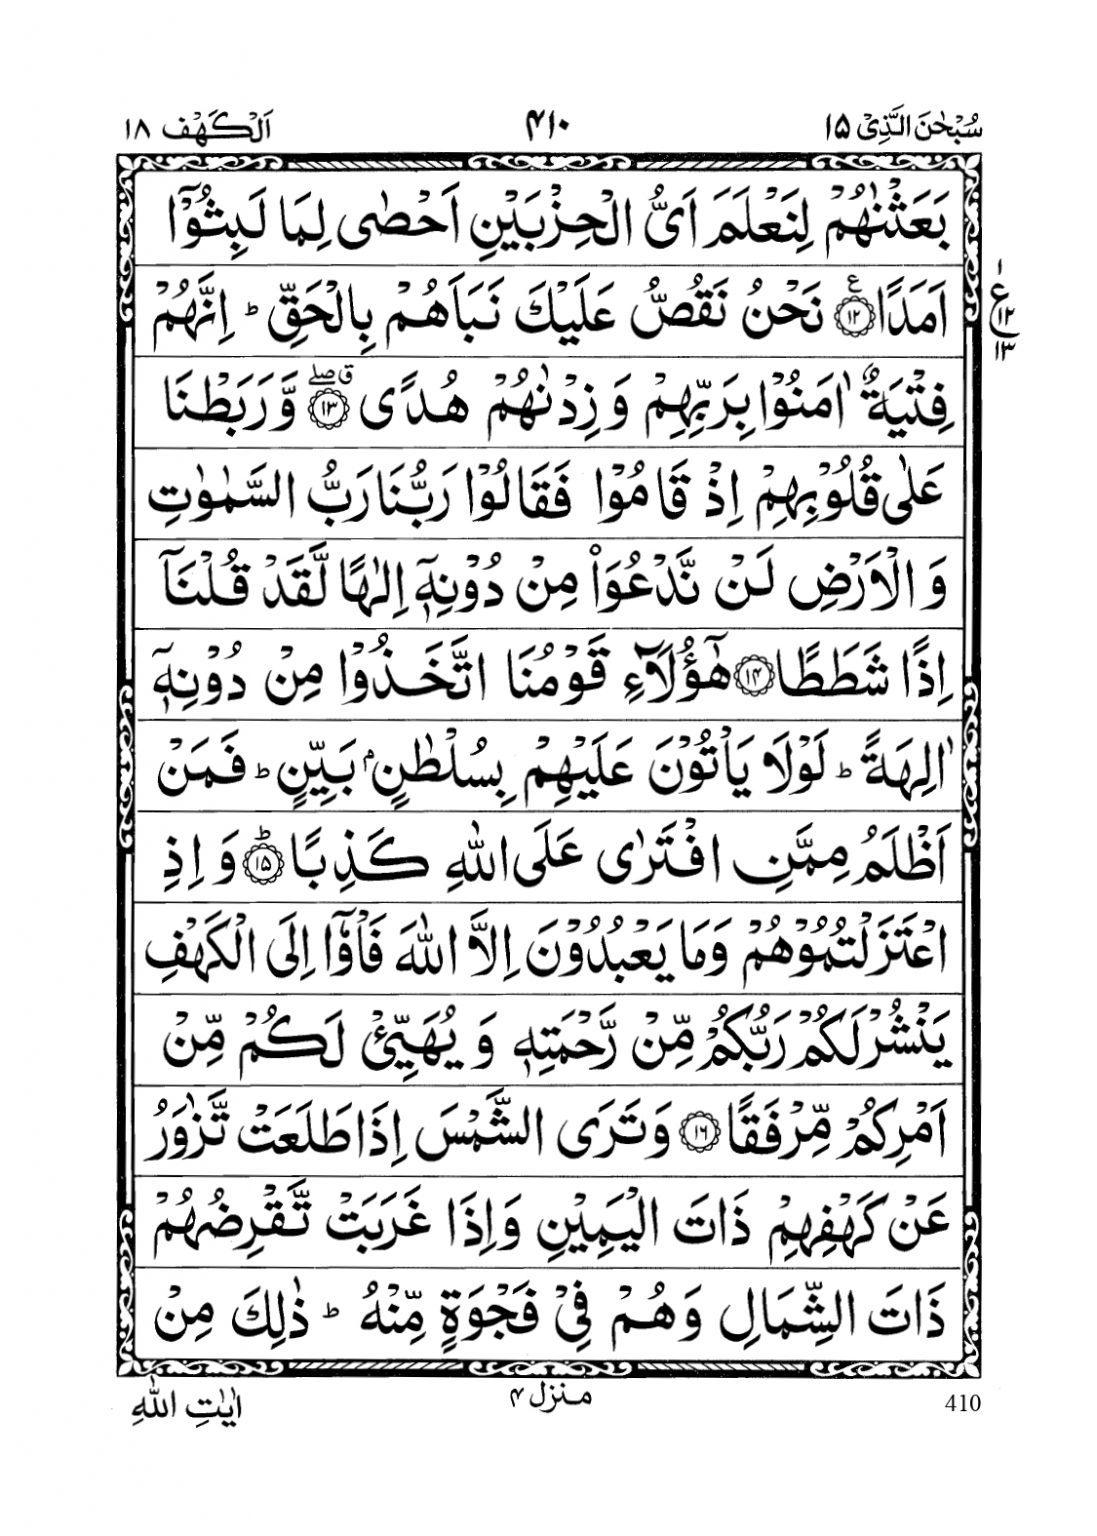 سُبْحٰنَ الَّذِیْۤ ۱۵ ۴۱۰ اَلْكَهْف ۱۸
بَعَثْنٰهُمْ لِنَعْلَمَ اَیُّ الْحِزْبَیْنِ اَحْصٰى لِمَا لَبِثُوْۤا
اَمَدًا ۱۲ ع نَحْنُ نَقُصُّ عَلَیْكَ نَبَاَهُمْ بِالْحَقِّ ؕ اِنَّهُمْ
۱
ع
۱۲
۱۳
فِتْیَةٌ اٰمَنُوْا بِرَبِّهِمْ وَ زِدْنٰهُمْ هُدًى ۱۳ ق صلے وَّ رَبَطْنَا
عَلٰى قُلُوْبِهِمْ اِذْ قَامُوْا فَقَالُوْا رَبُّنَا رَبُّ السَّمٰوٰتِ
وَ الْاَرْضِ لَنْ نَّدْعُوَاۡ مِنْ دُوْنِهٖۤ اِلٰهًا لَّقَدْ قُلْنَاۤ
اِذًا شَطَطًا ۱۴ هٰۤؤُلَآءِ قَوْمُنَا اتَّخَذُوْا مِنْ دُوْنِهٖۤ
اٰلِهَةً ؕ لَوْلَا یَاْتُوْنَ عَلَیْهِمْ بِسُلْطٰنٍۭ بَیِّنٍ ؕ فَمَنْ
اَظْلَمُ مِمَّنِ افْتَرٰى عَلَى اللّٰهِ كَذِبًا ۱۵ ؕ وَ اِذِ
اعْتَزَلْتُمُوْهُمْ وَمَا یَعْبُدُوْنَ اِلَّا اللّٰهَ فَاْوٗۤا اِلَى الْكَهْفِ
یَنْشُرْ لَكُمْ رَبُّكُمْ مِّنْ رَّحْمَتِهٖ وَ یُهَیِّئْ لَكُمْ مِّنْ
اَمْرِكُمْ مِّرْفَقًا ۱۶ وَ تَرَى الشَّمْسَ اِذَا طَلَعَتْ تَّزٰوَرُ
عَنْ كَهْفِهِمْ ذَاتَ الْیَمِیْنِ وَاِذَا غَرَبَتْ تَّقْرِضُهُمْ
ذَاتَ الشِّمَالِ وَهُمْ فِیْ فَجْوَةٍ مِّنْهُ ؕ ذٰلِكَ مِنْ
410 منزل ۴ اٰیٰتِ اللّٰهِ